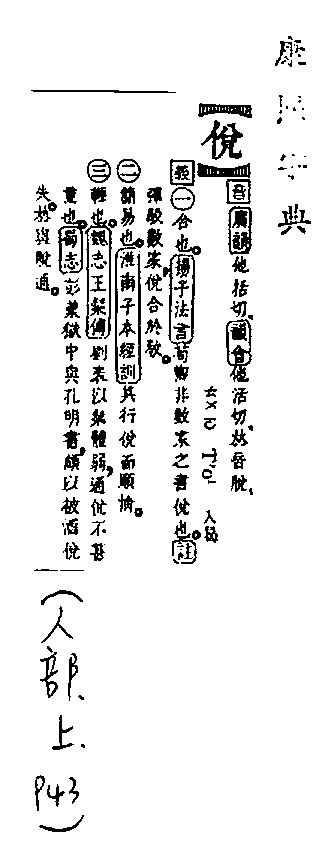 康熙字典
倪
音 廣韻 他括切、韻會 他活切、𠀤音脫、
ㄊㄨㄛ T'o¹ 入聲
義 ㊀合也。揚子法言 荀卿非數家之書倪也。註
彈駁數家倪合於敎。
㊁簡易也。淮南子本經訓 其行倪而順情。
㊂輕也。魏志王粲傳 劉表以粲體弱，通倪不甚
重也。蜀志 彭羕獄中與孔明書，頗以被酒倪
失。𠀤與脫通。
（人部.上.P43）